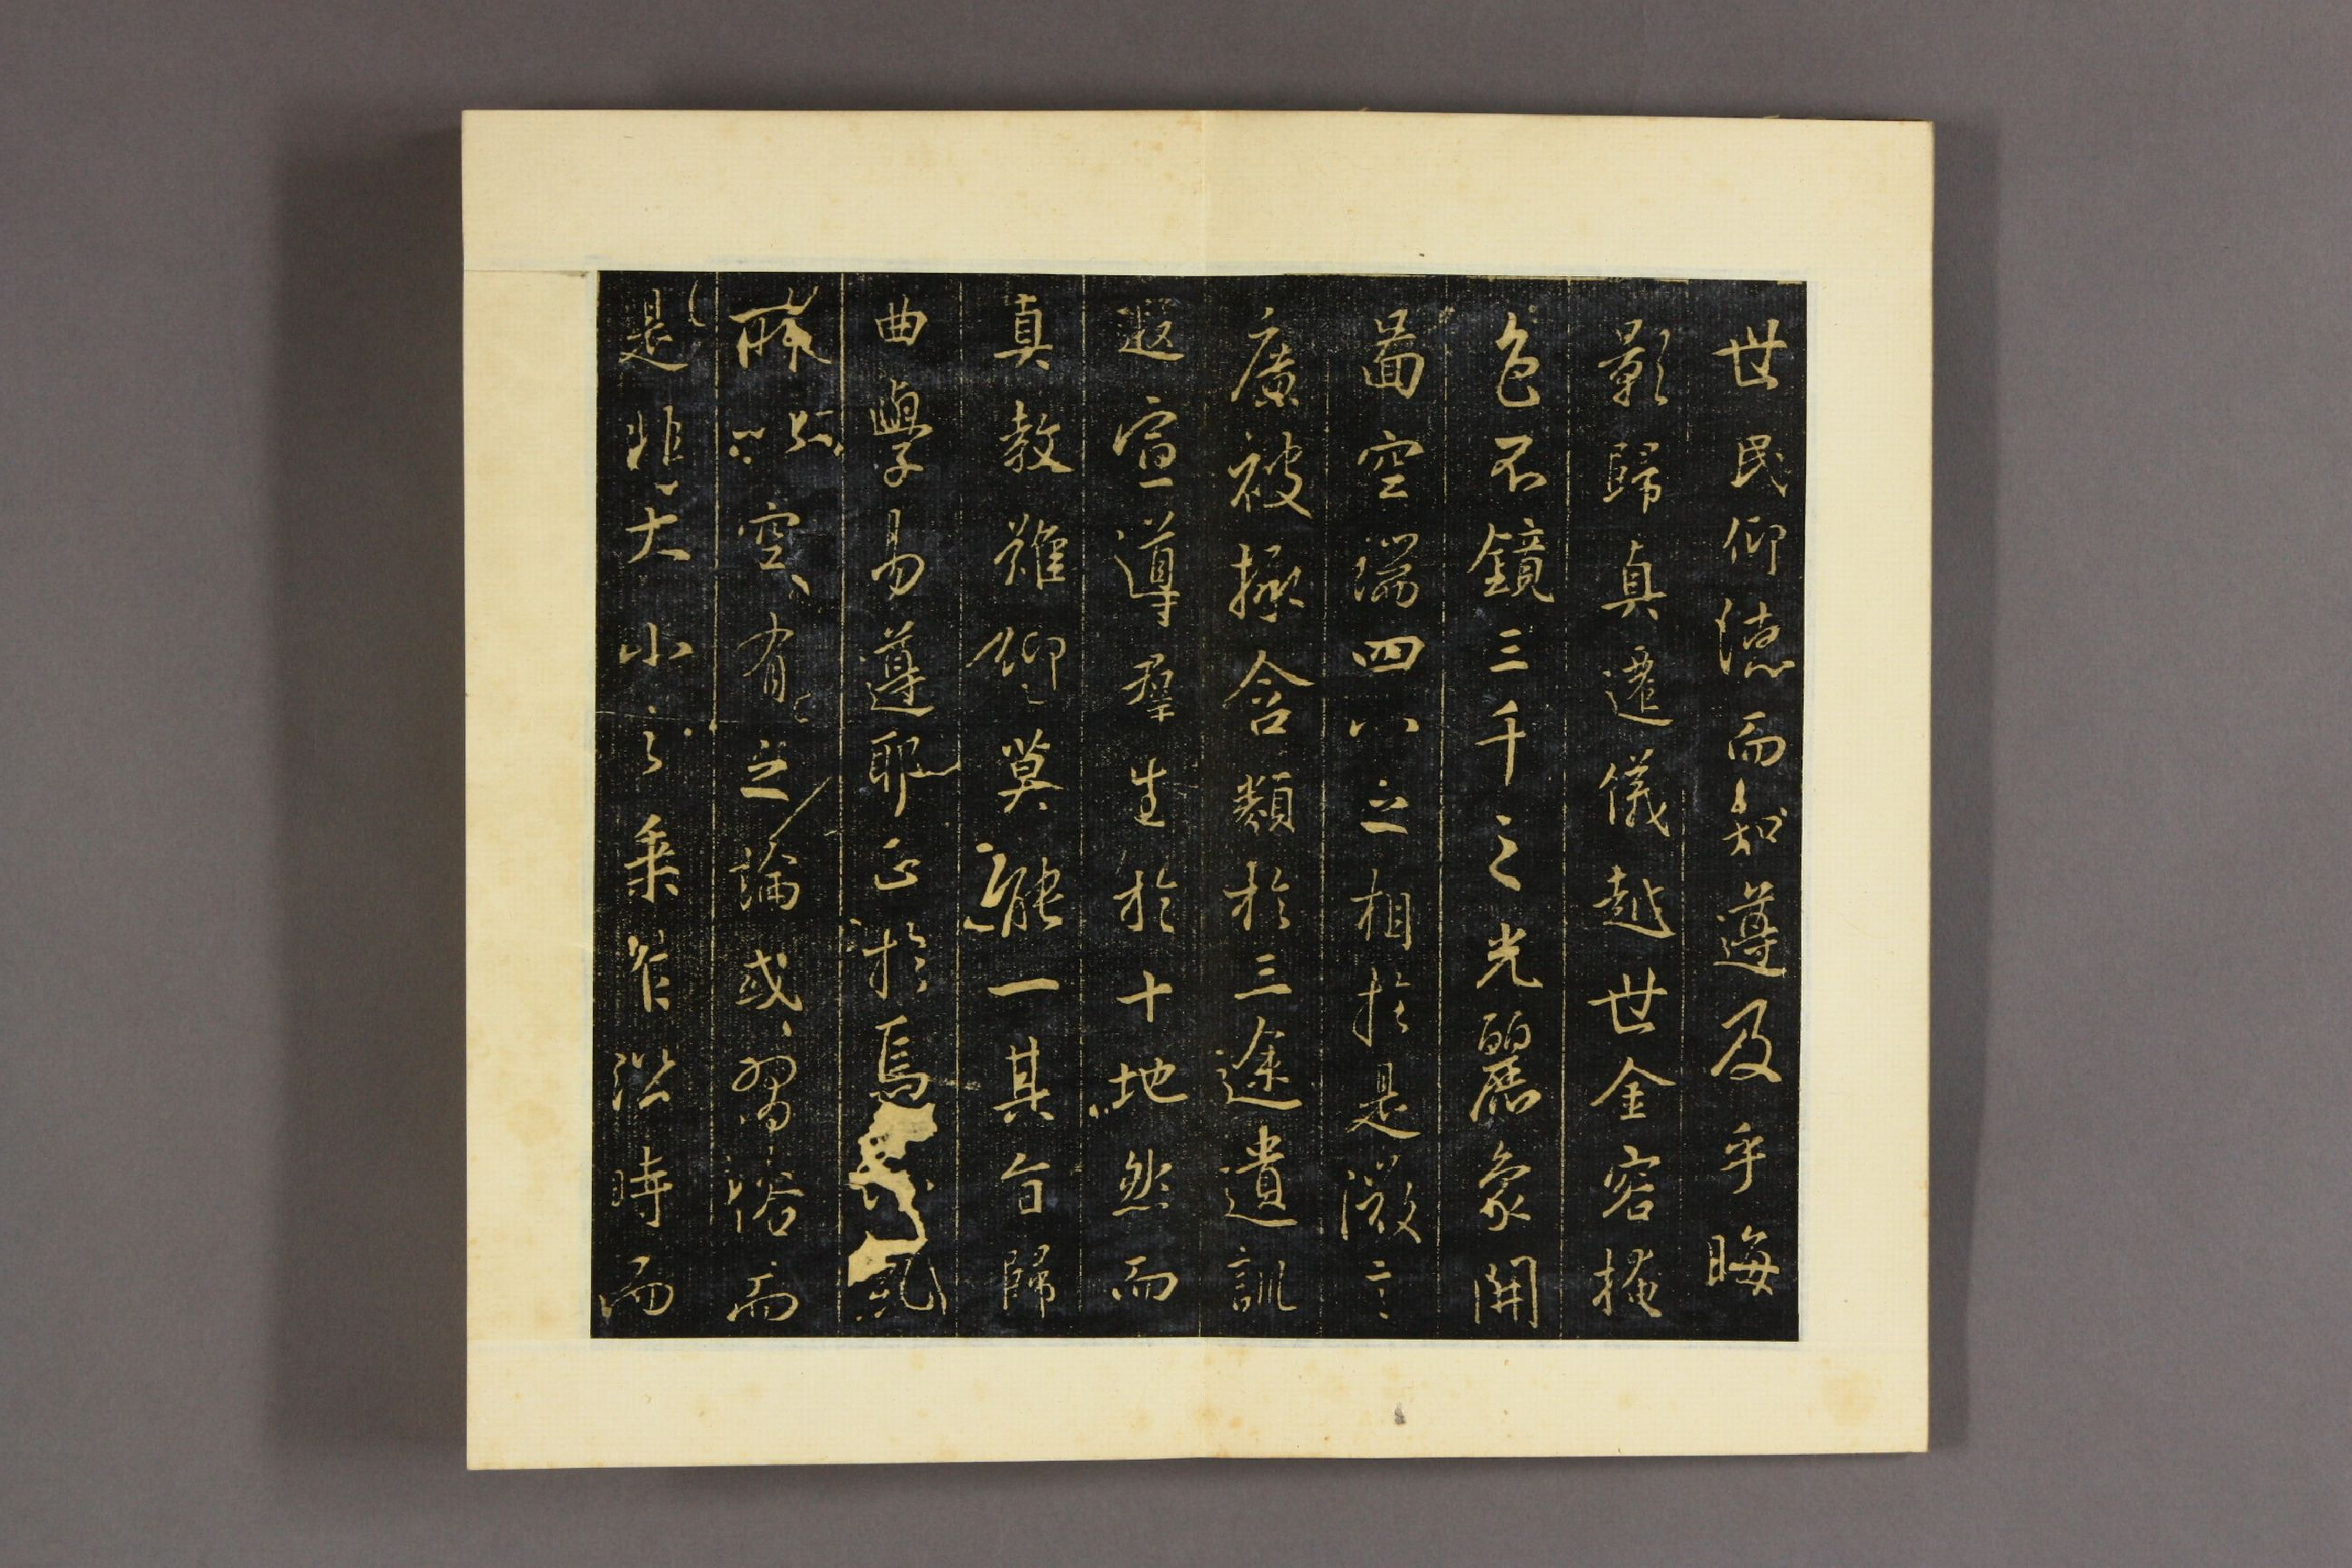 世民仰德而知遵及乎晦
影歸真遷儀越世金容掩
色不鏡三千之光麗象開
啚空端四八之相於是微言
廣被拯含類於三途遺訓
遐宣導羣生於十地然而
真教難仰莫能一其旨歸
曲學易遵耶正於焉紛糺
所以空有之論或習俗而
是非大小之乘乍沿時而